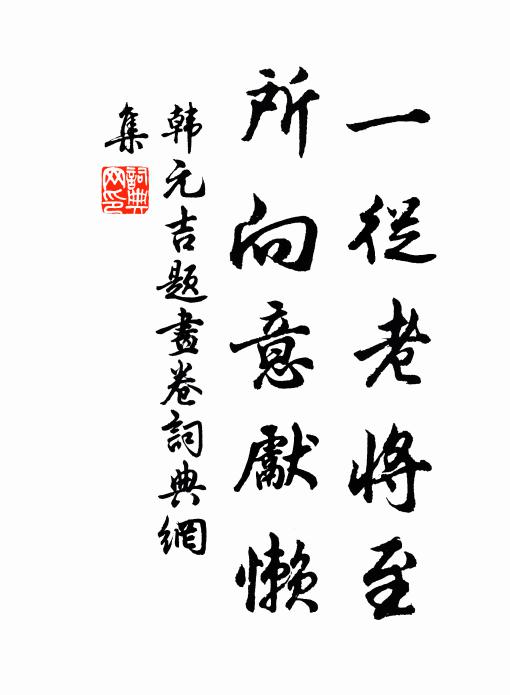 一從老將至
所向意獻懶
韩元吉題畫卷詞典網
集
詞典网印